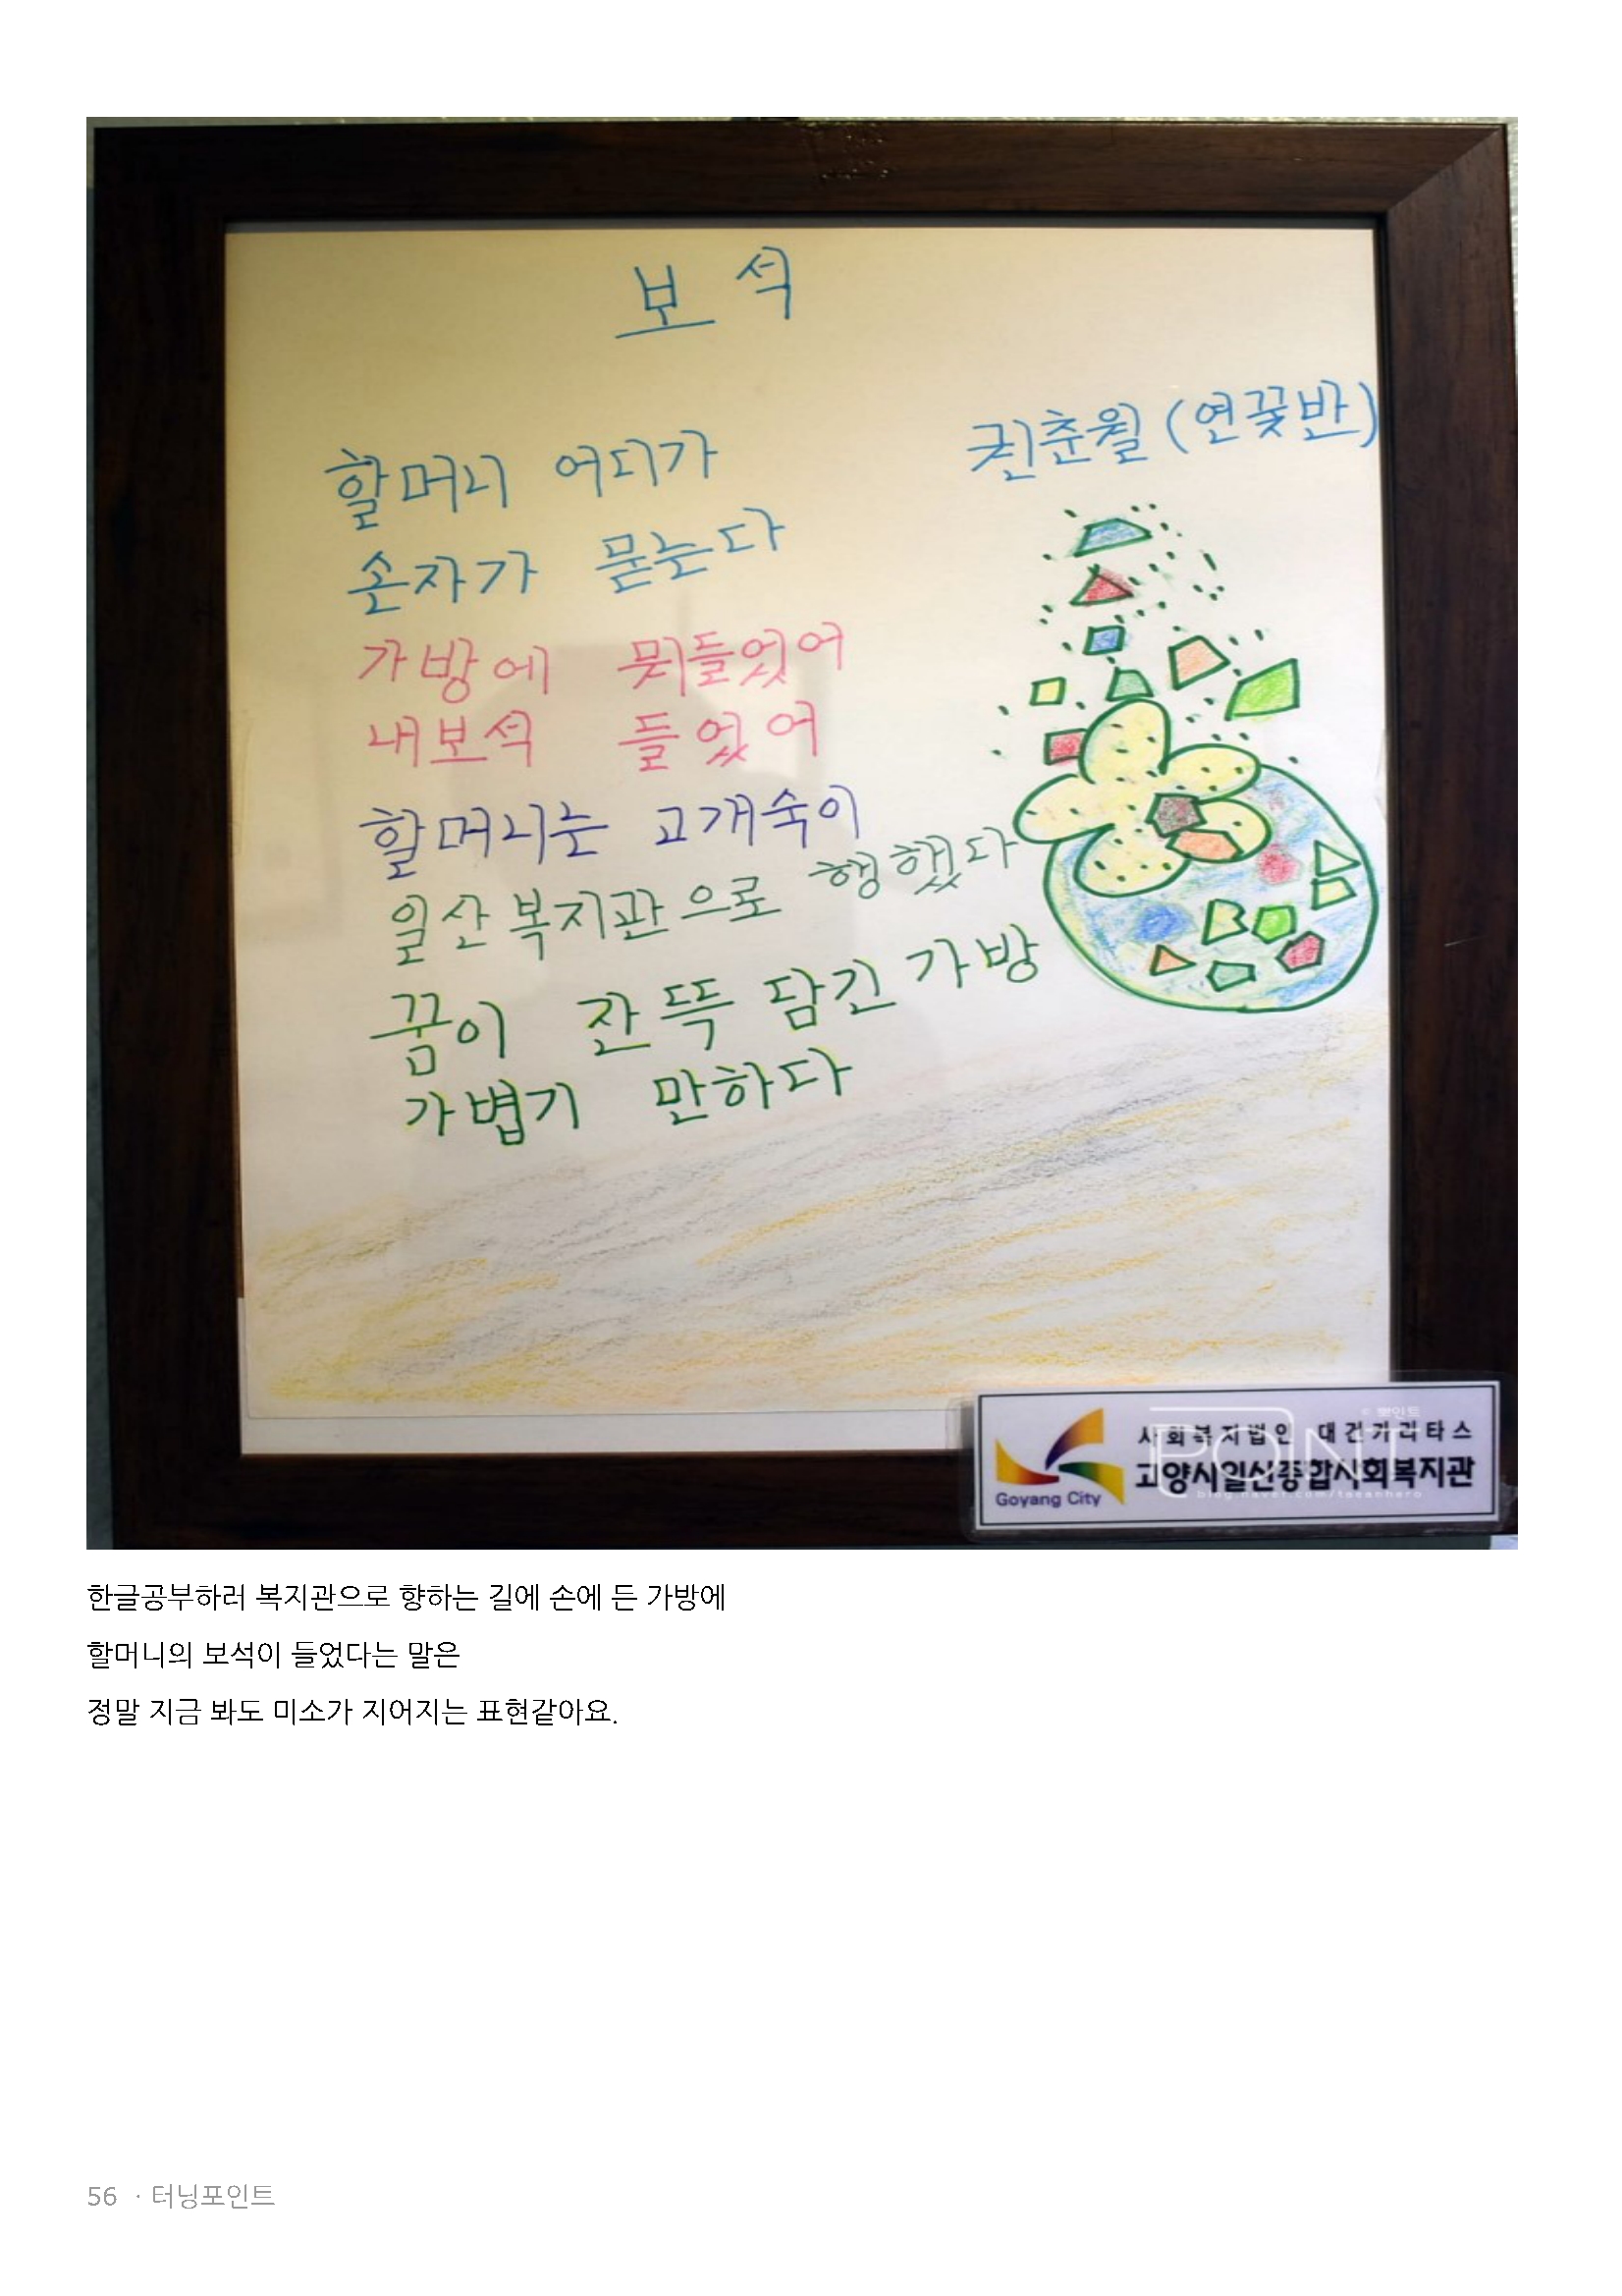 보석
권춘월 (연꽃반)
할머니 어디가
손자가 묻는다
가방에 뭐들었어
내보석 들었어
할머니는 고개숙이
일산복지관으로 행했다
꿈이 잔뜩 담긴 가방
가볍기 만하다
© 뽀인트
사회복지법인 대건카리타스
POINT
고양시일산종합사회복지관
Goyang City
blog.naver.com/tseanhero
한글공부하러 복지관으로 향하는 길에 손에 든 가방에
할머니의 보석이 들었다는 말은
정말 지금 봐도 미소가 지어지는 표현같아요.
56 · 터닝포인트